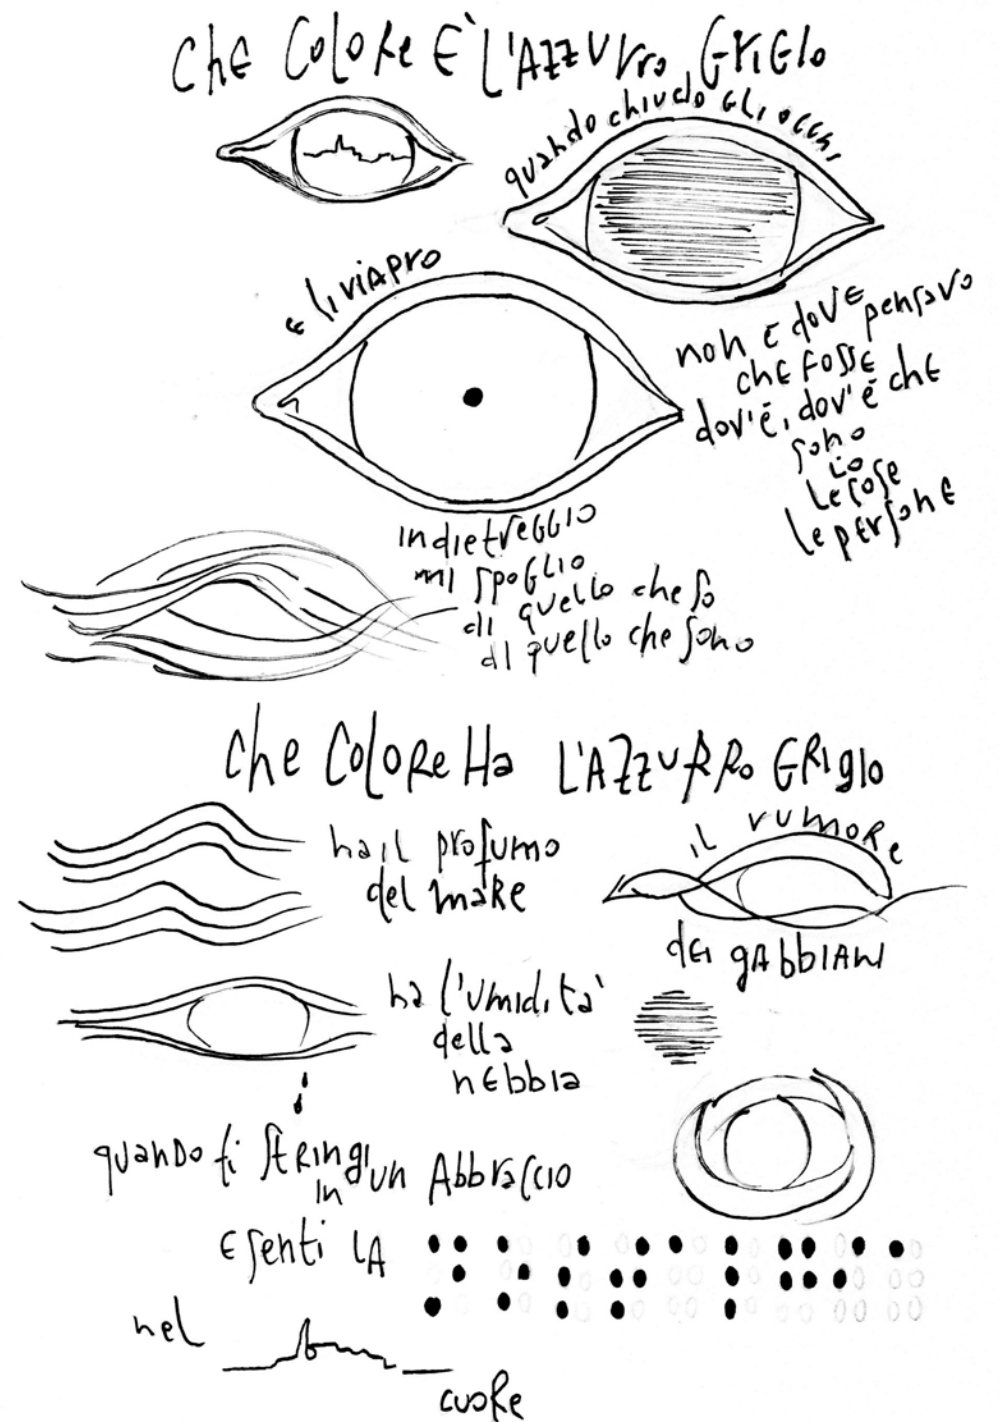 chE ColoRe E' L'AZZURro GriGIo
quando chiudo GLi occhi
e li riApro
non E dovE pensavo
chE fossE
dov'è, dov'è chE
sono
io
le cose
le personE
indietreGGIO
mI spoGlIO
di quello che so
dI quello che sono
Che ColoRe Ha L'AZZURRo GRIgIo
ha il profumo
del maRe
il rumoRe
dei gAbbIANI
ha l'umidita'
della
nEbbIa
quanDo ti StRIngi
In un Abbraccio
E senti LA ⠝⠕⠎⠞⠁⠇⠛⠊⠁
nel
cuoRe